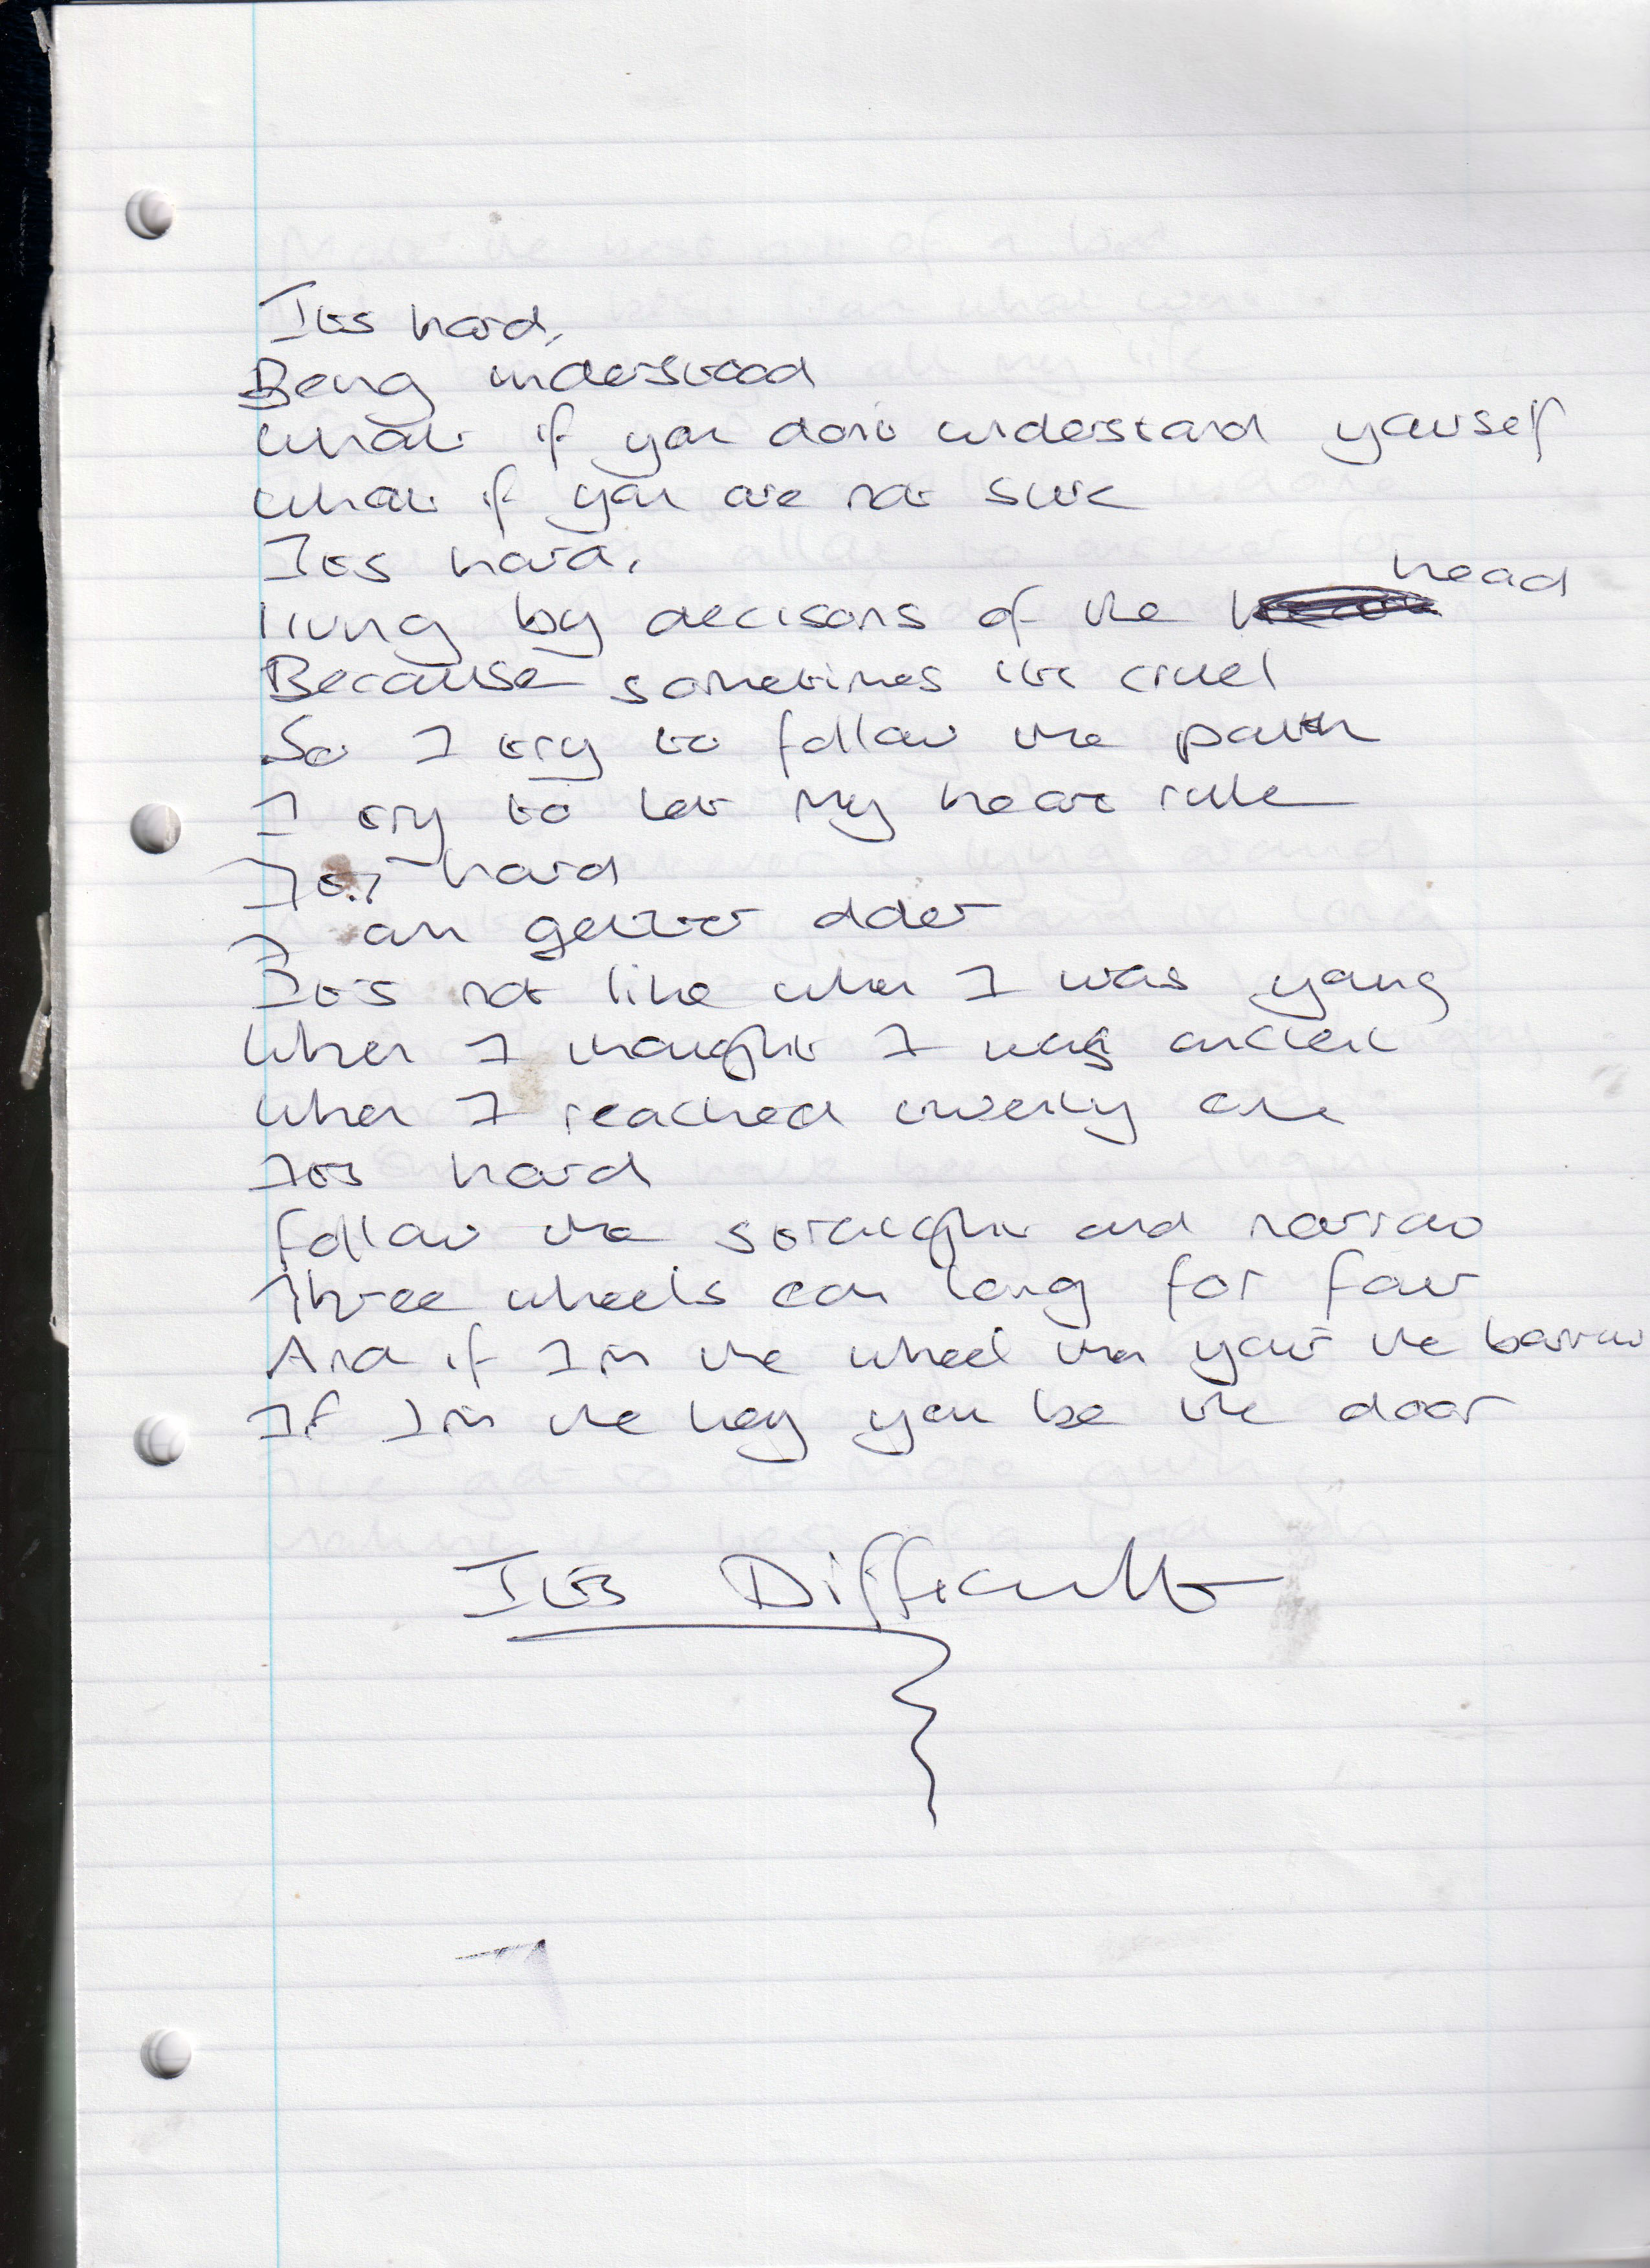 Its hard,
Being understood
what if you dont understand yourself
what if you are not sure
Its hard,
living by decisons of the head
Because sometimes its cruel
So I try to follow the path
I try to let my heart rule
Its hard
I am older
It's not like when I was young
When I thought I was ancient
When I reached twenty one
Its hard
follow the straight and narrow
Three wheels can long for four
And if I'm the wheel then your the barrow
If I'm the key you be the door
Its Difficult